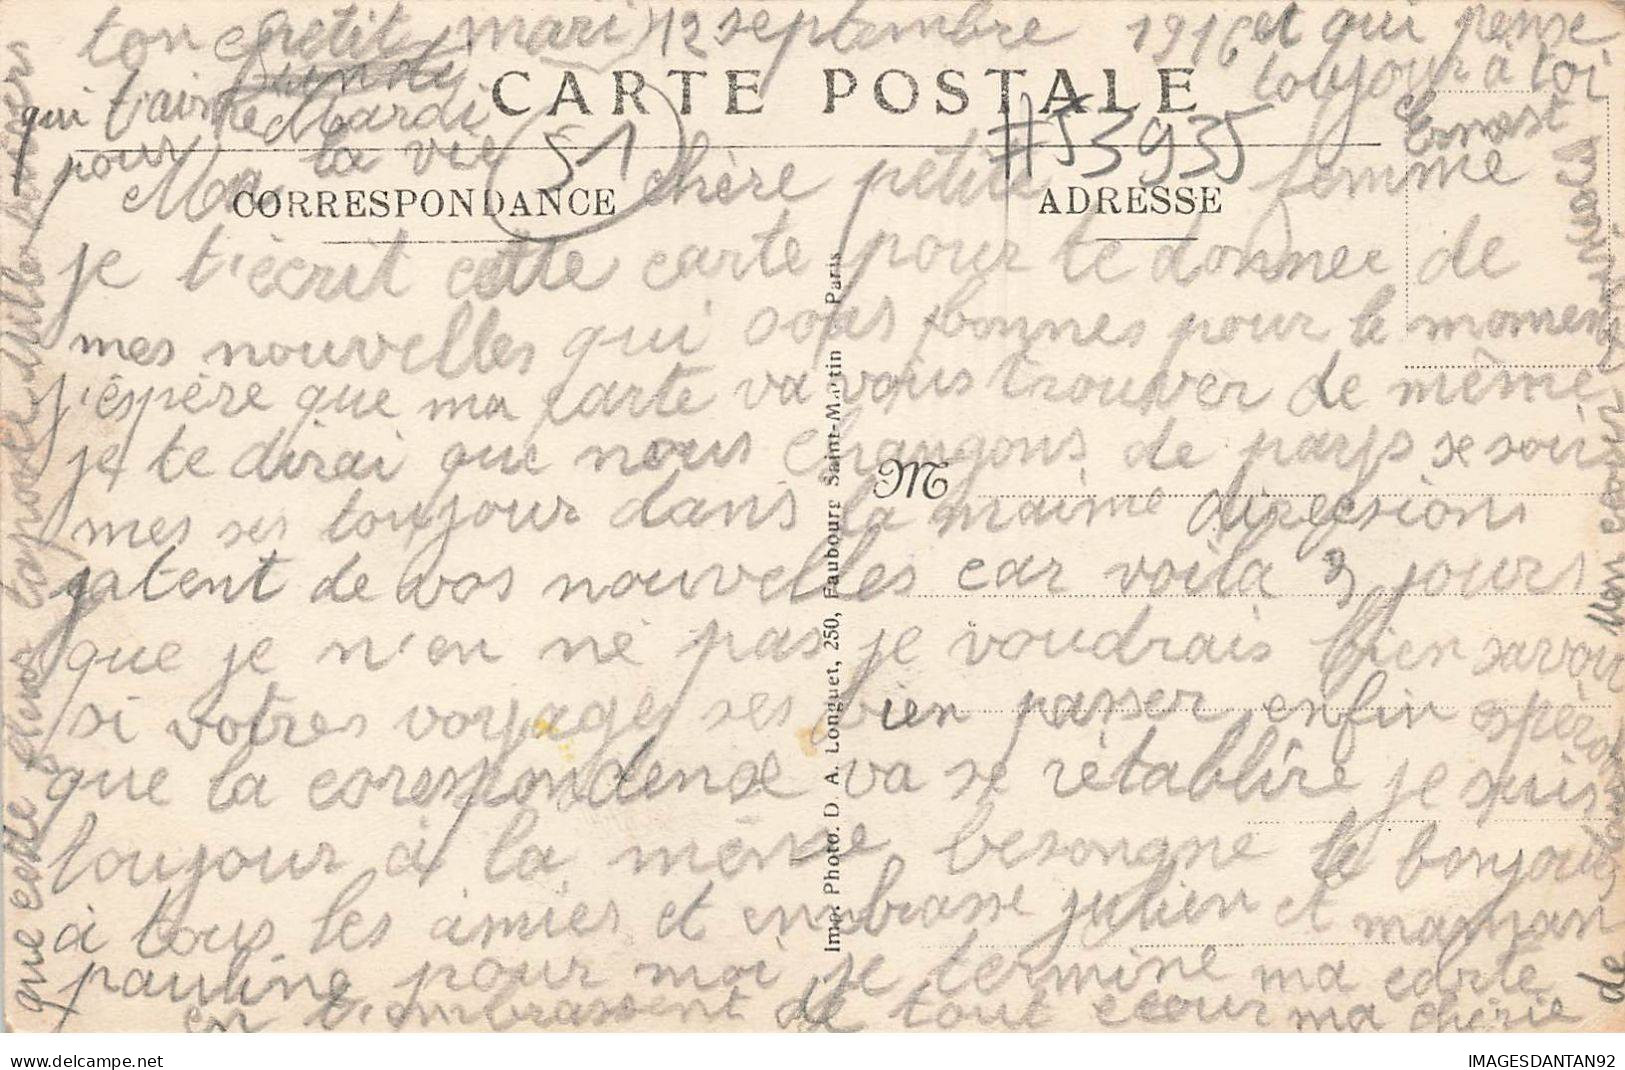 ton petit mari 12 septembre 1916 et qui pense
toujour à toi
lundi
CARTE POSTALE
qui t'aime Mardi
Ernest
pour la vie (51) #53935
Ma chère petite femme
CORRESPONDANCE
ADRESSE
je t'écrit cette carte pour te donner de
mes nouvelles qui sons bonnes pour le moment
j'éspère que ma carte va vous trouver de même
je te dirai que nous changons de pays se soir
M
mes ses toujour dans la maime direcsion
jatent de vos nouvelles car voila 3 jours
que je n'en né pas je voudrais bien savoir
si votres voyage ses bien passer enfin espèrons
que la corespondense va se rétablîre je suis
toujour à la même besongne le bonjour
à tous les amies et embrasse julien et maman
pauline pour moi je termine ma carte
en t'embrassent de tout ceour ma chérie
que cette
Mon
de
Imp. Photo. D. A. Longuet, 250, Faubourg Saint-Martin Paris
delcampe.net
IMAGESDANTAN92